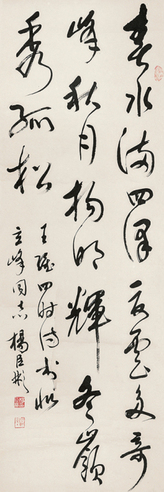 春水满四泽夏云多奇
峰秋月扬明辉冬岭
秀孤松
王瑶四时诗书似
立峰同志 杨臣彬